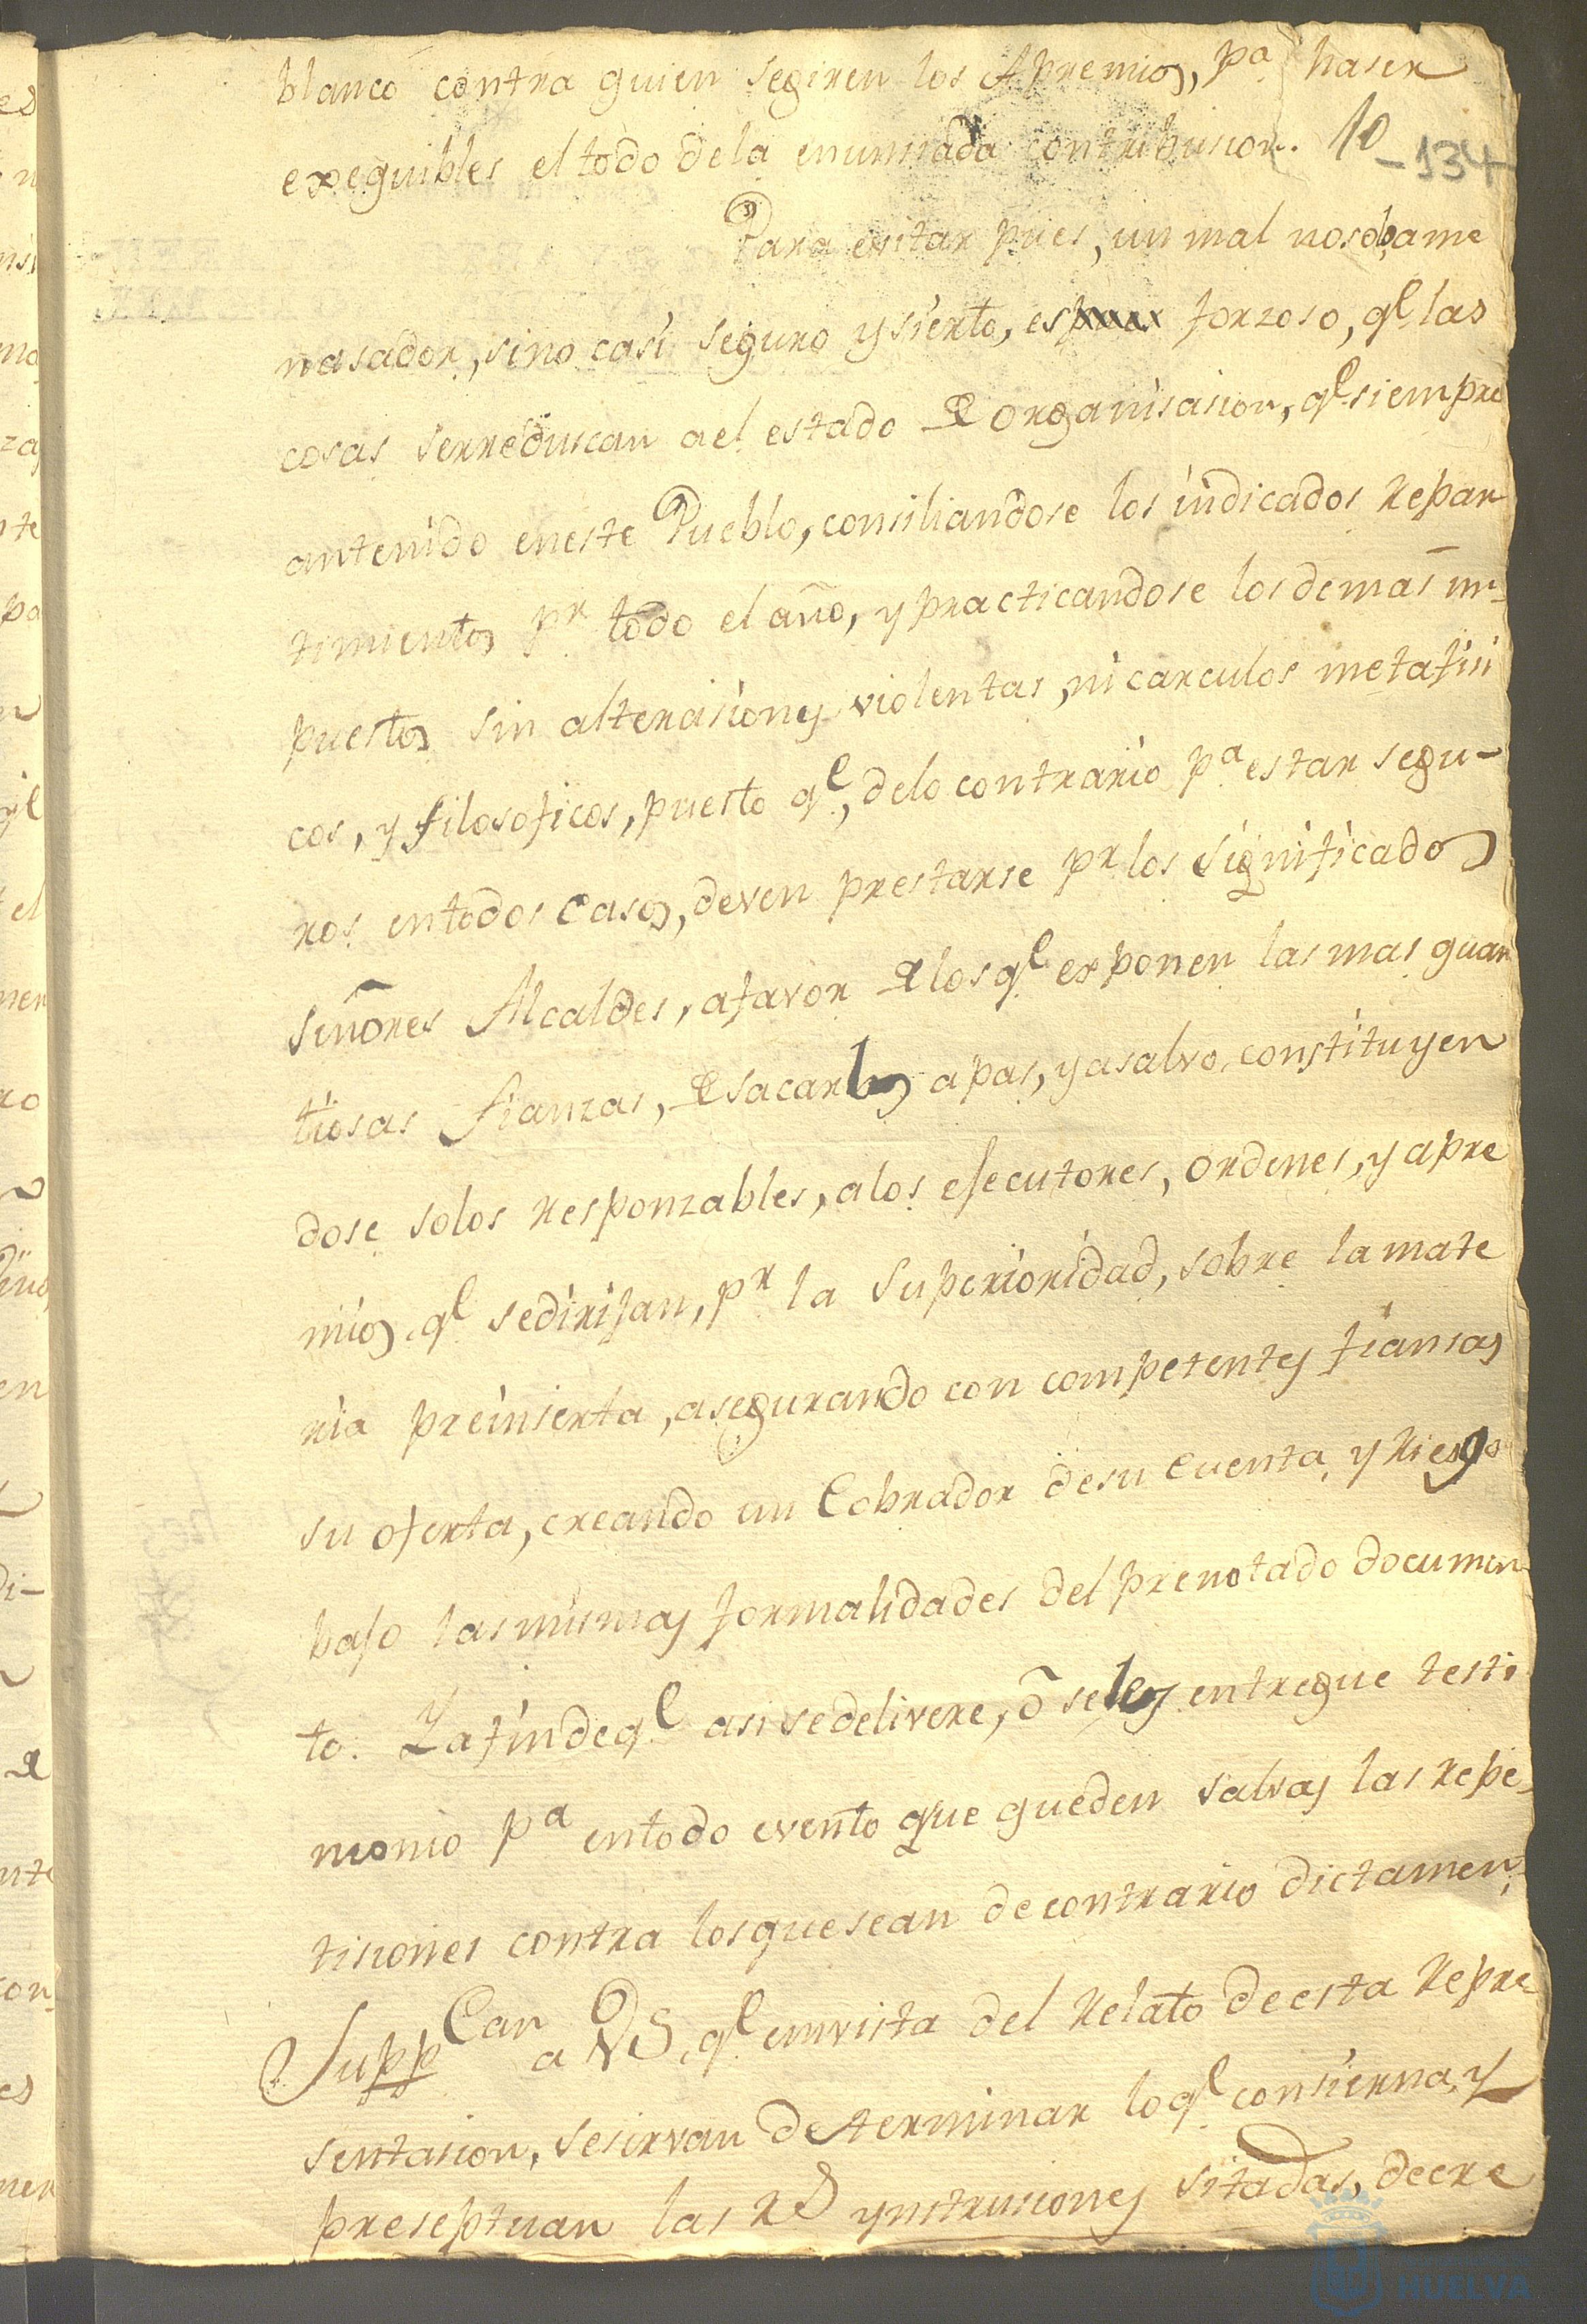 blanco contra quien segiren los Apremios, pa. haser
exequibles el todo dela enunsiada contribusion. 10
-134-
Para evitar pues, un mal nosolame
nasador, sino casi seguro y sierto, es forzoso, ql. las
cosas serreduscan ael estado de organisasion, ql. siempre
antenido eneste Pueblo, consiliandose los indicados repar
timientos pr. todo el año, y practicandose los demas im-
puestos sin alterasiones violentas, ni carculos metafisi
cos, y filosoficos, puesto ql., delo contrario pa. estar segu-
ros entodos Casos, deven prestarse pr. los significados
señores Alcaldes, afavor de los ql. exponen las mas quan
tiosas fianzas, de sacarlos apas, y asalvo, constituyen
dose solos responzables, alos ejecutores, ordenes, y apre
mios ql. sedirijan, pr. la Superioridad, sobre la mate
ria preinserta, asegurando con competentes fiansas
su oferta, creando un Cobrador desu Cuenta, y riesgo
bajo lasmismas formalidades del prenotado documen
to. Y afindeql. asi sedelivere, ō seles entregue testi
monio pa. entodo evento que queden salvas las repe-
tisiones contra losquesean de contrario dictamen,
SuppCan a VS. ql. envista del relato deesta repre
sentasion, sesirvan determinar loql. consierna, y
preseptuan las rs ynstrusiones sitadas, decre
HUELVA